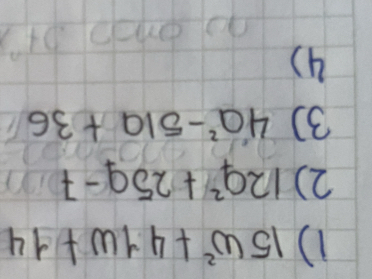 1) 15w² + 41w + 14
2) 12q² + 25q - 7
3) 4a² - 51a + 36
4)